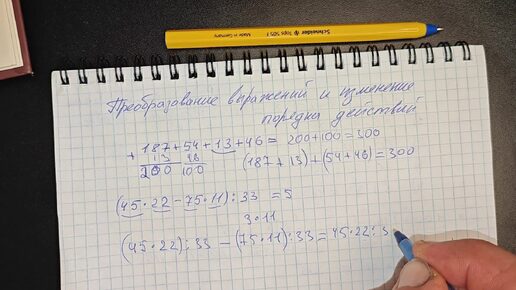 Schneider Tops 505 F
Made in Germany
Преобразование выражений и изменение
порядка действий
187+54+13+46= 200+100=300
+ 13 46
200 100
(187+13)+(54+46)=300
(45·22-75·11):33 =5
3·11
(45·22):33-(75·11):33=45·22:3